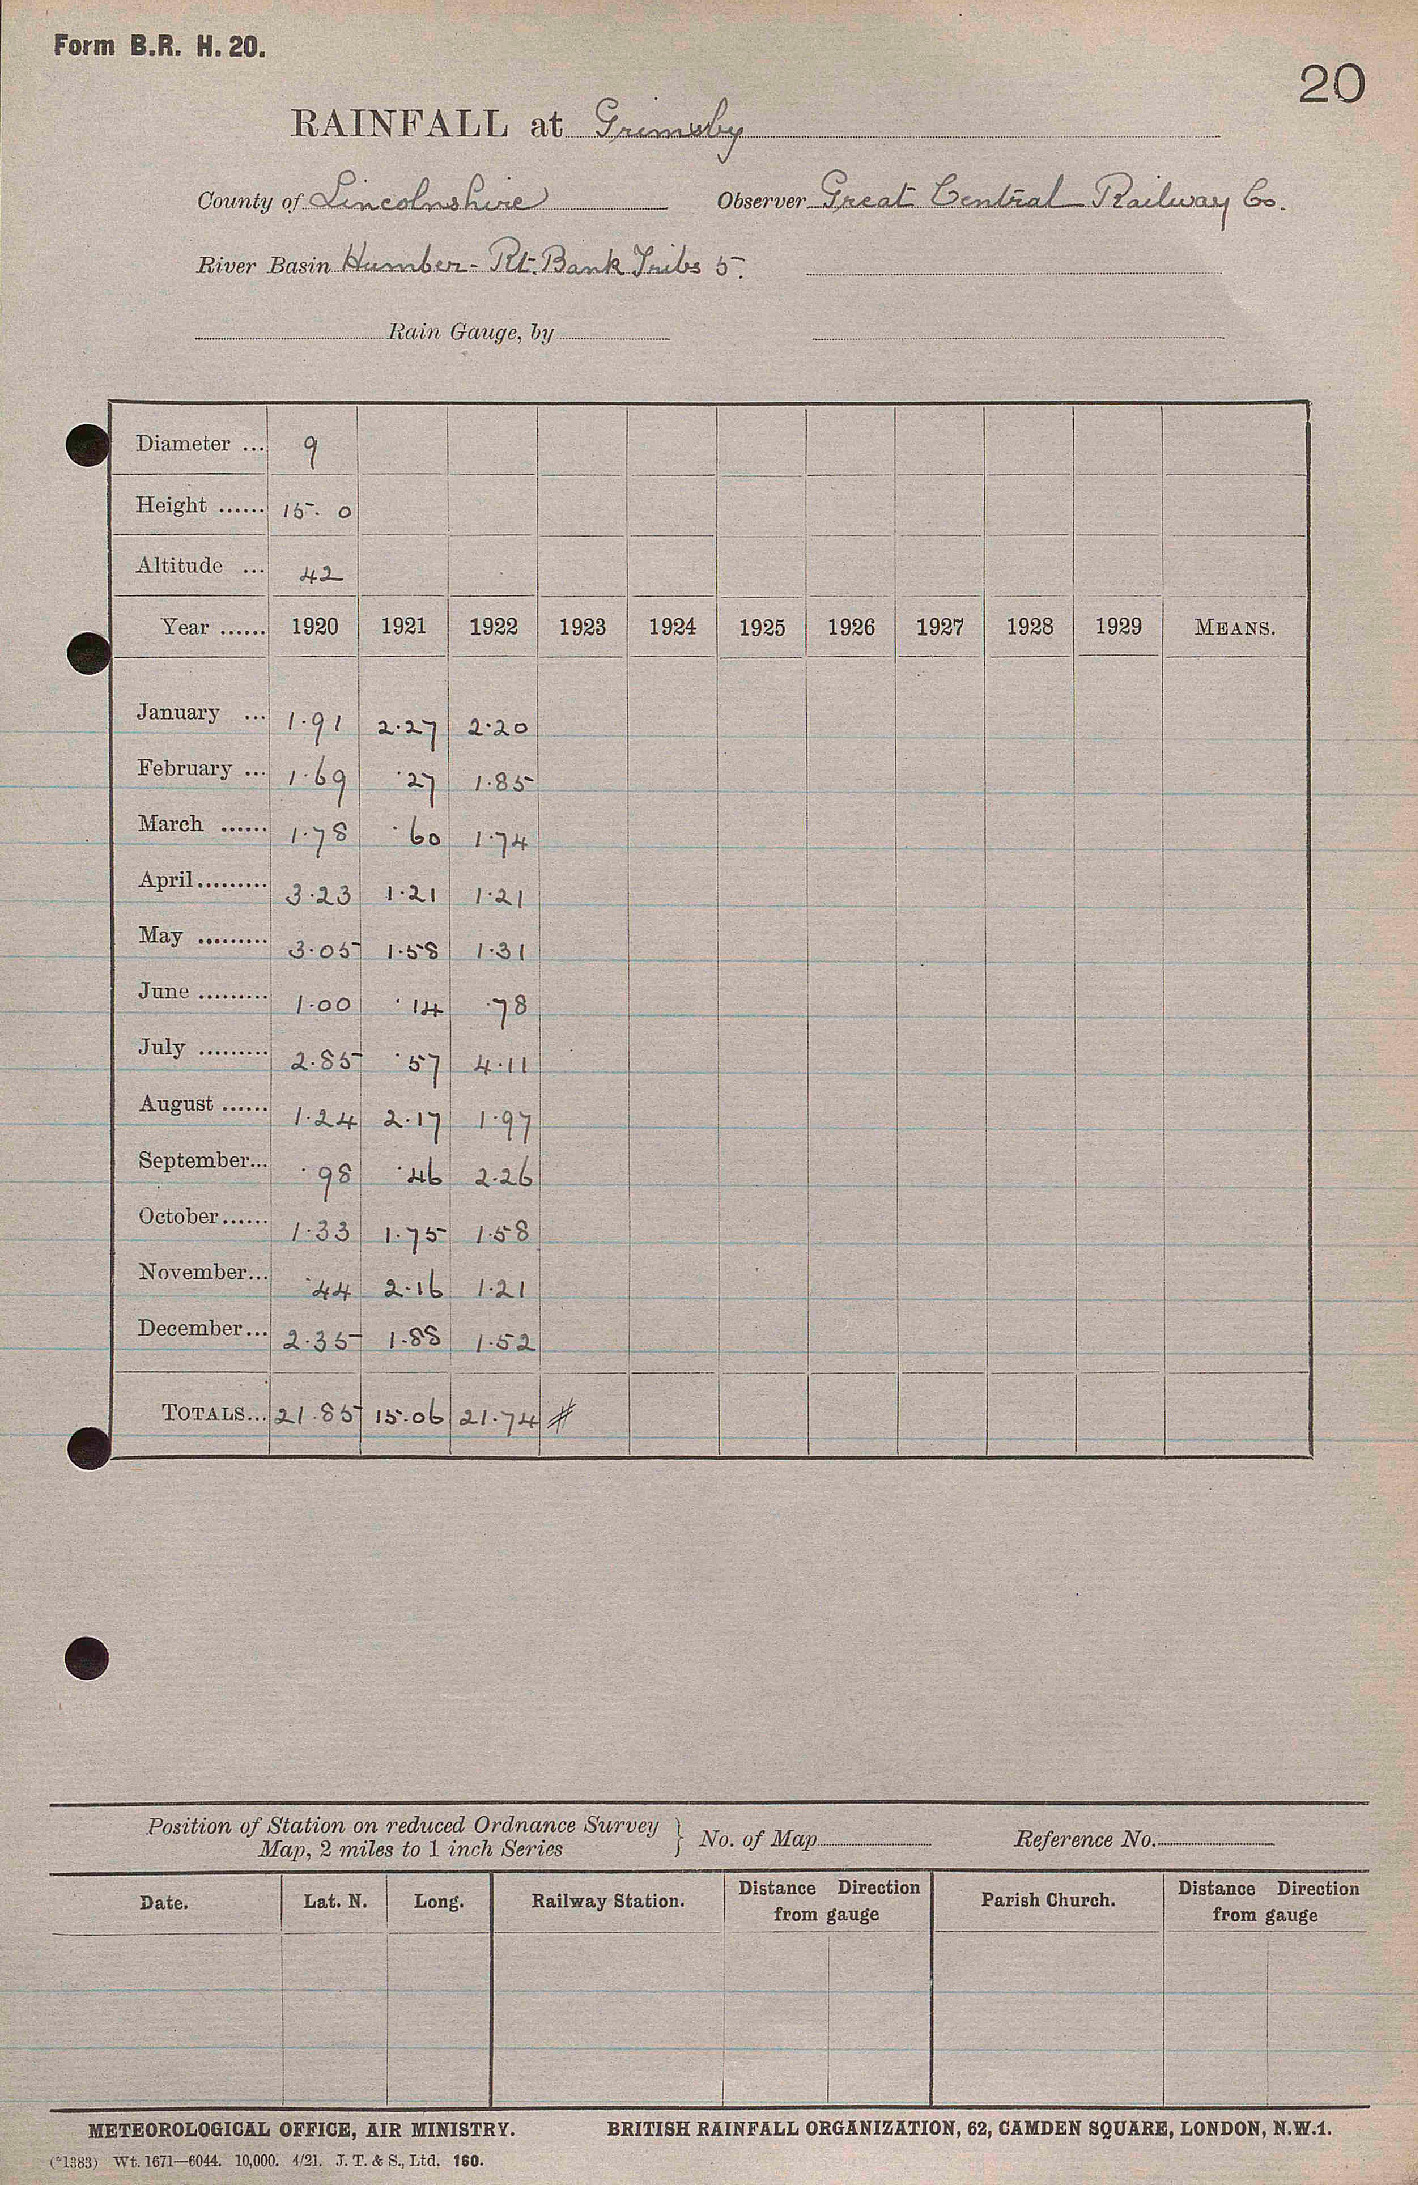 Form B.R. H. 20.
20
RAINFALL at Grimsby
County of Lincolnshire Observer Great Central Railway Co.
River Basin Humber - Rt. Bank Tribs 5.
Rain Gauge, by
Diameter ... 9
Height ...... 15. 0
Altitude ... 42
Year ...... 1920 1921 1922 1923 1924 1925 1926 1927 1928 1929 MEANS.
January ... 1.91 2.27 2.20
February ... 1.69 .27 1.85
March ...... 1.78 .60 1.74
April ......... 3.23 1.21 1.21
May ......... 3.05 1.58 1.31
June ......... 1.00 .14 .78
July ......... 2.85 .57 4.11
August ...... 1.24 2.17 1.97
September... .98 .46 2.26
October...... 1.33 1.75 1.58
November... .44 2.16 1.21
December... 2.35 1.88 1.52
TOTALS... 21.85 15.06 21.74 #
Position of Station on reduced Ordnance Survey
Map, 2 miles to 1 inch Series } No. of Map Reference No.
Date. Lat. N. Long. Railway Station. Distance Direction from gauge Parish Church. Distance Direction from gauge
METEOROLOGICAL OFFICE, AIR MINISTRY. BRITISH RAINFALL ORGANIZATION, 62, CAMDEN SQUARE, LONDON, N.W.1.
(*1383) Wt. 1671—6044. 10,000. 4/21. J. T. & S., Ltd. 160.